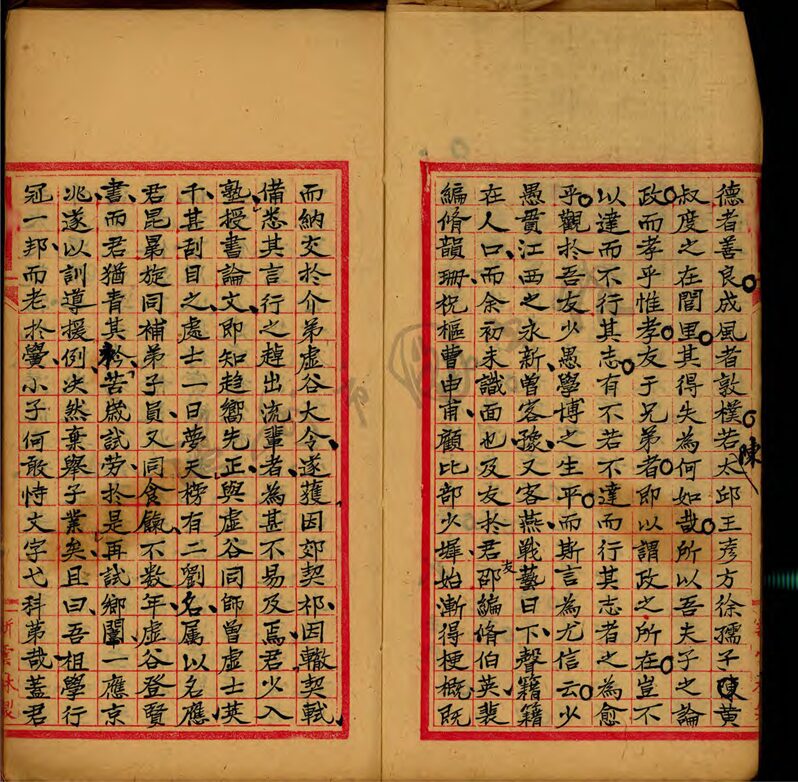 德者善良成風者敦樸若太邱王彥方徐孺子陳黃
陳
叔度之在閭里其得失為何如哉所以吾夫子之論
政而孝乎惟孝友于兄弟者即以謂政之所在豈不
以達而不行其志有不若不達而行其志者之為愈
乎觀於吾友少愚學博之生平而斯言為尤信云少
愚貫江西之永新曾客豫又客燕戰藝日下聲籍籍
在人口而余初未識面也及友於君邵編脩伯英裴
支
編脩韻珊祝樞曹由甫顧比部少墀始漸得梗概既
而納交於介弟虛谷大令遂獲因郊契祁因轍契軾
備悉其言行之趠出流輩者為甚不易及焉君少入
塾授書論文即知趨嚮先正與虛谷同師曾虛士英
千甚刮目之處士一日夢天榜有二劉名属以名應
君昆弟旋同補弟子員又同食餼不數年虛谷登賢
書而君猶青其衿苦葴試勞於是再試鄉闈一應京
兆遂以訓導援例决然棄舉子業矣且曰吾祖學行
冠一邦而老於黌小子何敢恃文字弋科第哉蓋君